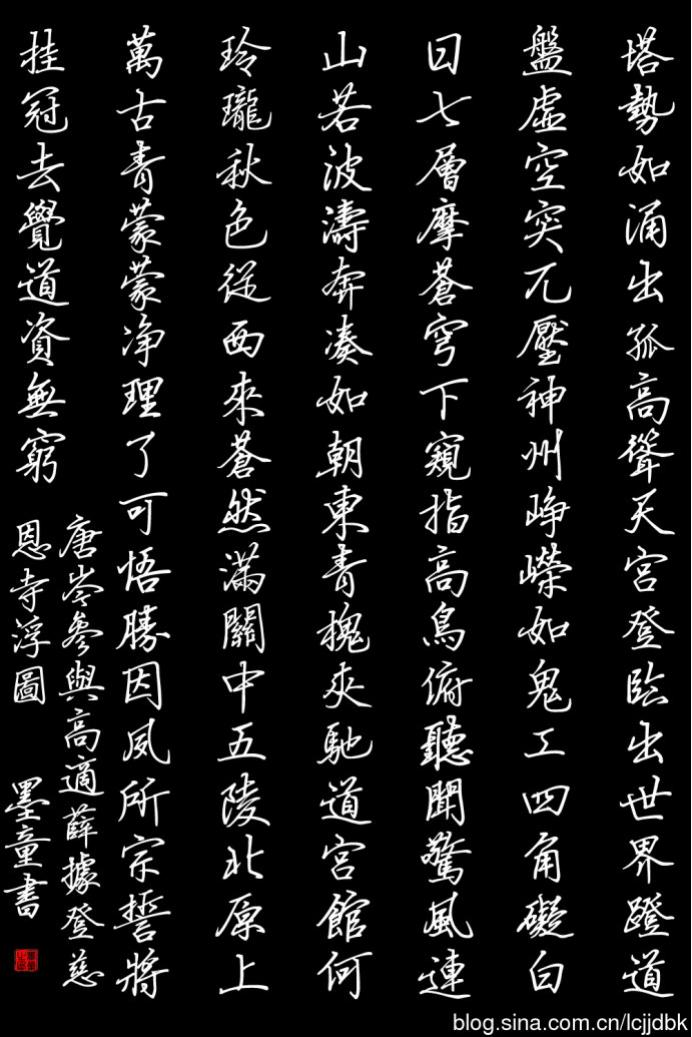 塔勢如涌出孤高聳天宮登臨出世界蹬道
盤虛空突兀壓神州崢嶸如鬼工四角礙白
日七層摩蒼穹下窺指高鳥俯聽聞驚風連
山若波濤奔湊如朝東青槐夾馳道宮館何
玲瓏秋色從西來蒼然滿關中五陵北原上
萬古青蒙蒙净理了可悟勝因夙所宗誓將
挂冠去覺道資無窮
唐岑參與高適薛據登慈
恩寺浮圖
墨童書
blog.sina.com.cn/lcjjdbk